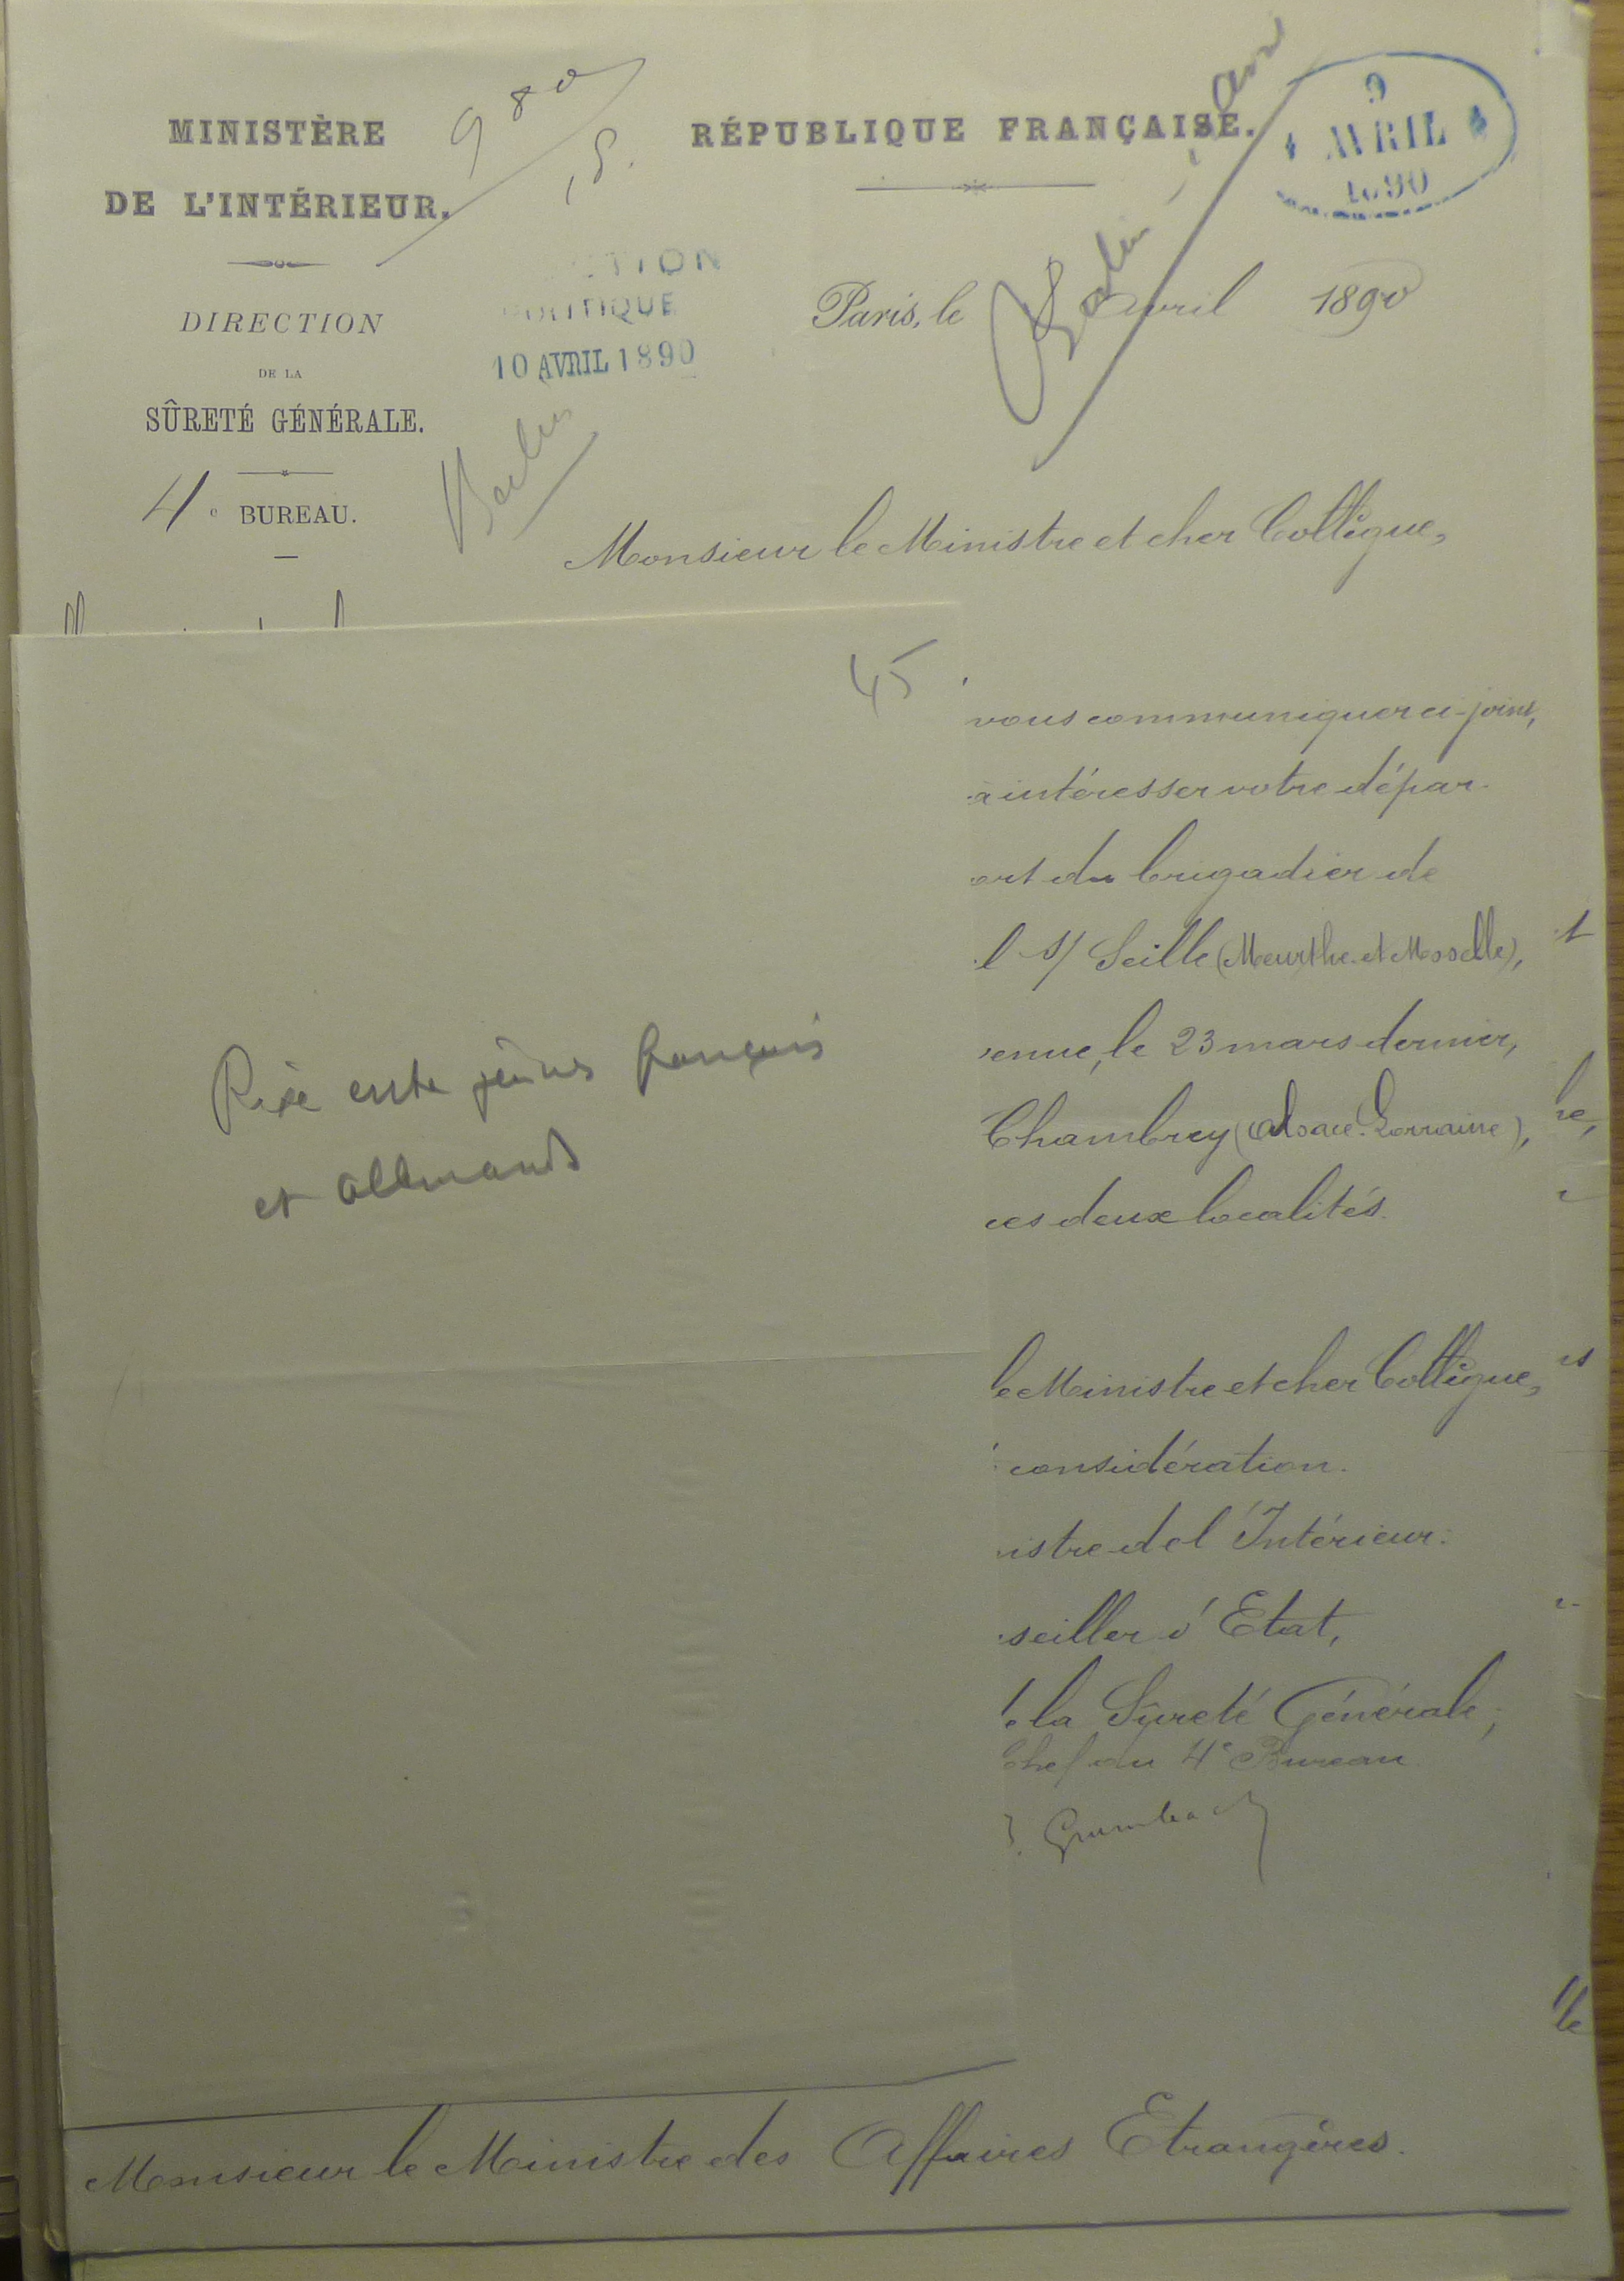 MINISTÈRE
DE L'INTÉRIEUR.
DIRECTION
DE LA
SÛRETÉ GÉNÉRALE.
4e BUREAU.
980
RÉPUBLIQUE FRANÇAISE.
9
AVRIL
1890
POLITIQUE
10 AVRIL 1890
Berlin
Paris, le
avril 1890
Monsieur le Ministre et cher Collègue,
45
Rixe entre jeunes français
et allemands
vous communiquer ci-joint,
à intéresser votre dépar-
ort du brigadier de
l s/ Seille (Meurthe et Moselle),
enue, le 23 mars dernier,
Chambrey (Alsace-Lorraine),
ces deux localités.
le Ministre et cher Collègue,
considération.
istre de l'Intérieur:
seiller d'Etat,
e la Sûreté Générale;
Chef du 4e Bureau
Grumbach
Monsieur le Ministre des Affaires Etrangères.